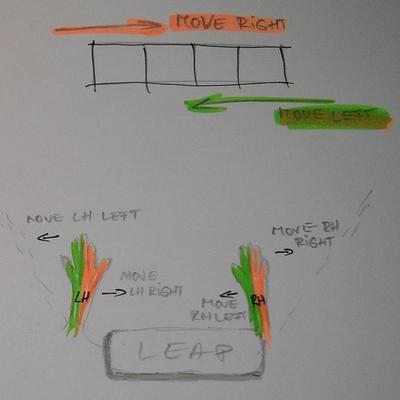 MOVE RIGHT
MOVE LEFT
MOVE LH LEFT
MOVE RH
RIGHT
MOVE
LH RIGHT
MOVE
RH LEFT
LH
RH
LEAP